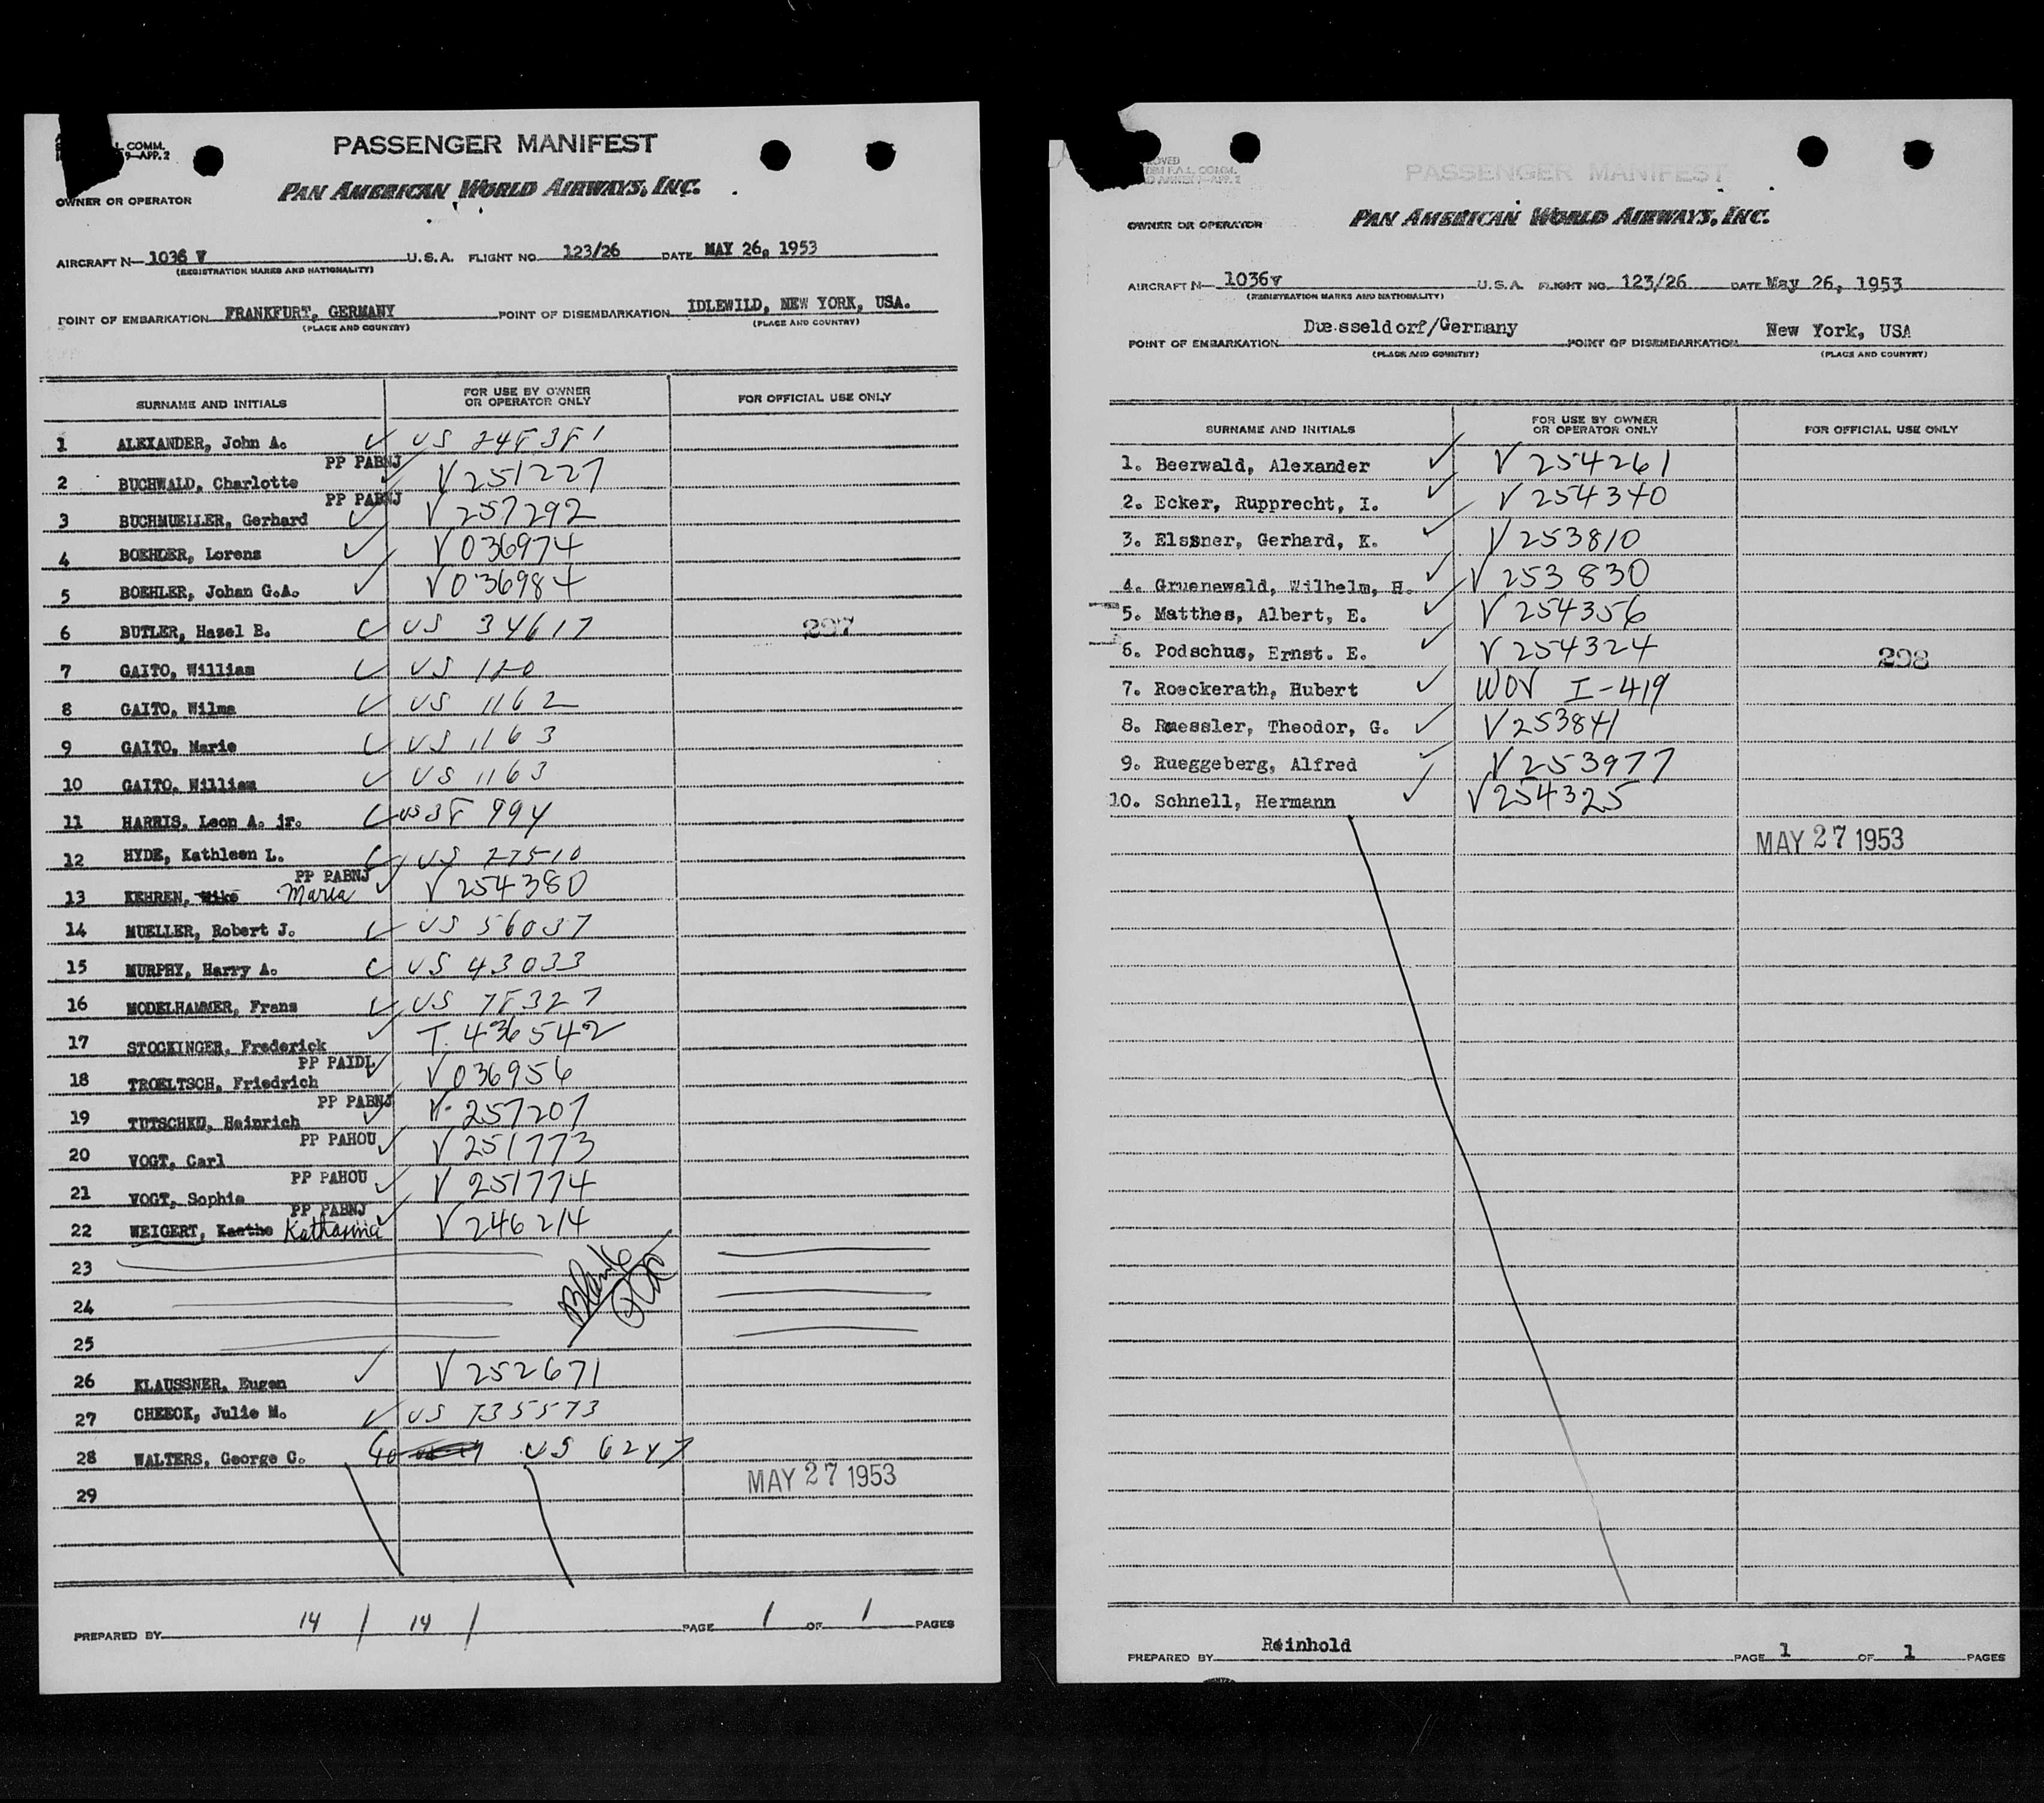 L COMM.
9—APP. 2
PASSENGER MANIFEST
PAN AMERICAN WORLD AIRWAYS, INC.
OWNER OR OPERATOR
AIRCRAFT N— 1036 V U.S.A. FLIGHT NO. 123/26 DATE MAY 26, 1953
(REGISTRATION MARKS AND NATIONALITY)
POINT OF EMBARKATION FRANKFURT, GERMANY POINT OF DISEMBARKATION IDLEWILD, NEW YORK, USA.
(PLACE AND COUNTRY) (PLACE AND COUNTRY)
SURNAME AND INITIALS FOR USE BY OWNER OR OPERATOR ONLY FOR OFFICIAL USE ONLY
1 ALEXANDER, John A. US 24838 1
PP PABNJ
2 BUCHWALD, Charlotte V 251227
PP PABNJ
3 BUCHMUELLER, Gerhard V 257292
4 BOEHLER, Lorenz V 036974
5 BOEHLER, Johan G.A. V 036984
6 BUTLER, Hazel B. US 34617 297
7 GAITO, William US 120
8 GAITO, Wilma US 1162
9 GAITO, Marie US 1163
10 GAITO, William US 1163
11 HARRIS, Leon A. jr. US 38 994
12 HYDE, Kathleen L. US 27510
PP PABNJ
13 KEHREN, Maria V 254380
14 MUELLER, Robert J. US 56037
15 MURPHY, Harry A. US 43033
16 MODELHAMMER, Frans US 78327
17 STOCKINGER, Frederick T. 436542
PP PAIDL
18 TROELTSCH, Friedrich V 036956
PP PABNJ
19 TUTSCHKU, Heinrich V. 257207
PP PAHOU
20 VOGT, Carl V 251773
PP PAHOU
21 VOGT, Sophie V 251774
PP PABNJ
22 WEIGERT, Kaethe Katharina V 246214
23
24
25
Blank
26 KLAUSSNER, Eugen V 252671
27 CHEECK, Julie M. US 735573
28 WALTERS, George C. US 6247
29
MAY 27 1953
PREPARED BY 14 / 14 / PAGE 1 OF 1 PAGES
PASSENGER MANIFEST
PAN AMERICAN WORLD AIRWAYS, INC.
OWNER OR OPERATOR
AIRCRAFT N— 1036v U.S.A. FLIGHT NO. 123/26 DATE May 26, 1953
(REGISTRATION MARKS AND NATIONALITY)
POINT OF EMBARKATION Duesseldorf/Germany POINT OF DISEMBARKATION New York, USA
(PLACE AND COUNTRY) (PLACE AND COUNTRY)
SURNAME AND INITIALS FOR USE BY OWNER OR OPERATOR ONLY FOR OFFICIAL USE ONLY
1. Beerwald, Alexander V 254261
2. Ecker, Rupprecht, I. V 254340
3. Elssner, Gerhard, K. V 253810
4. Gruenewald, Wilhelm, H. V 253830
5. Matthes, Albert, E. V 254356
6. Podschus, Ernst. E. V 254324 298
7. Roeckerath, Hubert WOV I-419
8. Ruessler, Theodor, G. V 253841
9. Rueggeberg, Alfred V 253977
10. Schnell, Hermann V 254325
MAY 27 1953
PREPARED BY Reinhold PAGE 1 OF 1 PAGES